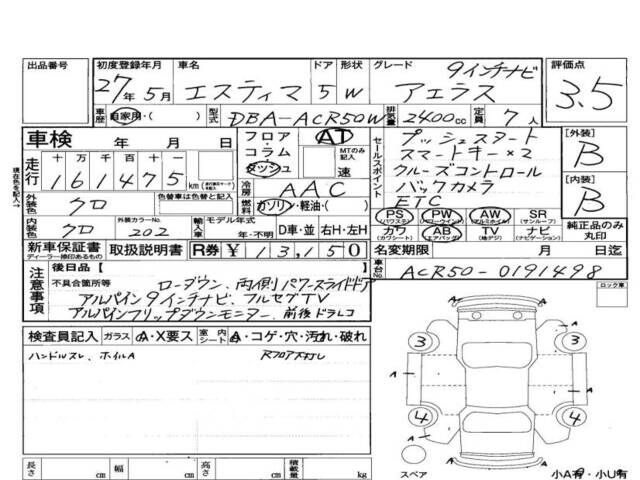 出品番号 初度登録年月 車名 ドア 形状 グレード 9インチナビ 評価点
27年5月 エスティマ 5 W アエラス 3.5
車歴 自家用・( ) 型式 DBA-ACR50W 排気量 2400cc 定員 7人
車検 年 月 日 フロア・コラム・ダッシュ AT MTのみ記入 速
セールスポイント プッシュスタート [外装]
スマートキー×2 B
走行 十万千百十一 161475 km クルーズコントロール
冷房 AAC バックカメラ [内装]
ETC B
現在色を記入→ 外装色 クロ 色替車は色替と記入 燃料 ガソリン・軽油・( )
PS (パワステ) PW (パワーウインド) AW (アルミホイル) SR (サンルーフ)
内装色 クロ 外装カラーNo. 202 輸入車 モデル年式 年・不明 D車・並 右H・左H
カワ (カワシート) AB (エアバッグ) TV (地デジ) ナビ (ナビゲーション) 純正品のみ丸印
新車保証書 ディーラー捺印あるもの 取扱説明書 R券 ¥13,150 名変期限 月 日迄
車台No. ACR50-0191498
注意事項 後日品 [ ]
不具合箇所等 ローダウン、両側パワースライドドア
アルパイン9インチナビ、フルセグTV
アルパインフリップダウンモニター、前後ドラレコ
ロック車
検査員記入 ガラス A・X要ス 室内シート A・コゲ・穴・汚れ・破れ
ハンドルスレ、ホイルA
3 3
A A A A
4 4
A
長さ cm 幅 cm 高さ cm 積載量 kg
スペア 小A有・小U有